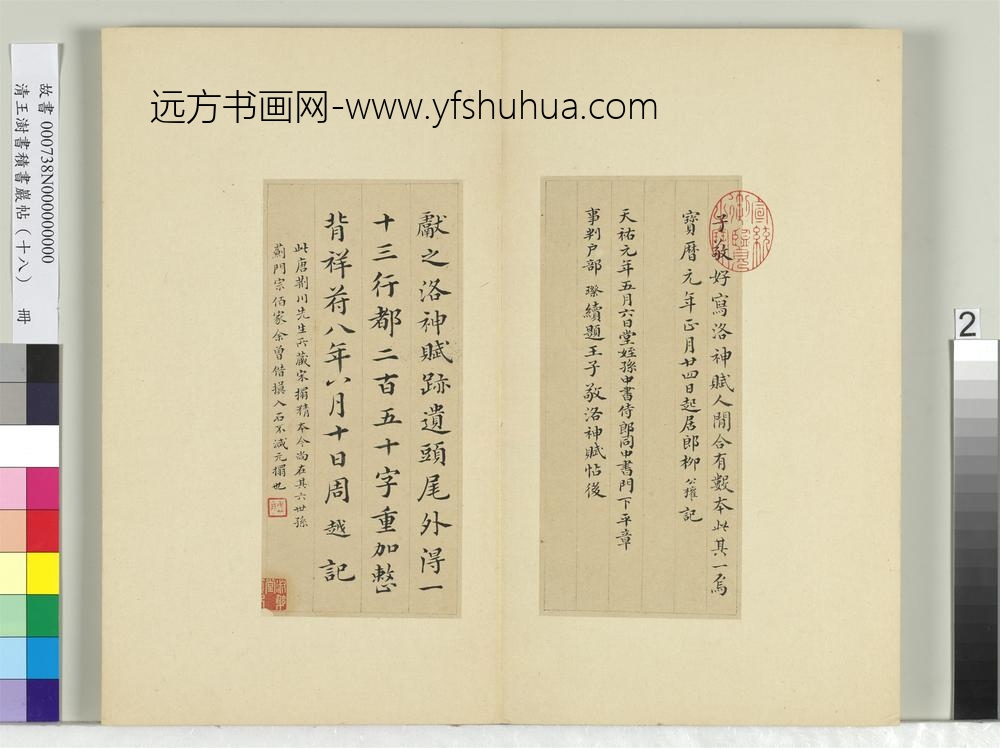 远方书画网-www.yfshuhua.com
故書 000738N000000000
清王澍書積書巖帖(十八) 冊
2
子敬好寫洛神賦人間合有數本此其一焉
寶曆元年正月廿四日起居郎柳公權記
天祐元年五月六日堂姪孫中書侍郎同中書門下平章
事判户部璨續題王子敬洛神賦帖後
獻之洛神賦跡遺頭尾外得一
十三行都二百五十字重加整
背祥符八年八月十日周越記
此唐荆川先生所藏宋搨精本今尚在其六世孫
薊門宗伯家余曾借摹入石不減元搨也